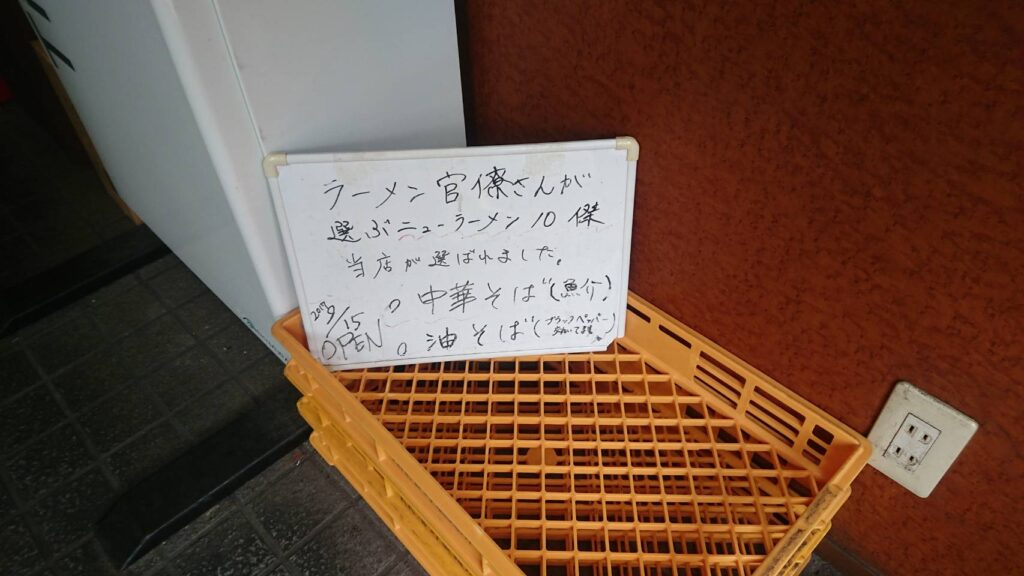 ラーメン官僚さんが
選ぶニューラーメン10傑
当店が選ばれました。
2017
9/15
OPEN
○中華そば(魚介)
○油そば(ブラックペッパー